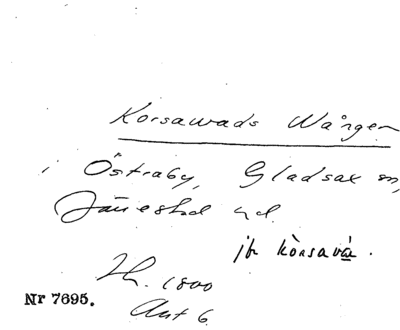 Korsawads Wången
i Östraby, Gladsax sn,
Järrestad hd.
jfr kòrsavá̱.
Lh. 1800
Akt 6
Nr 7695.